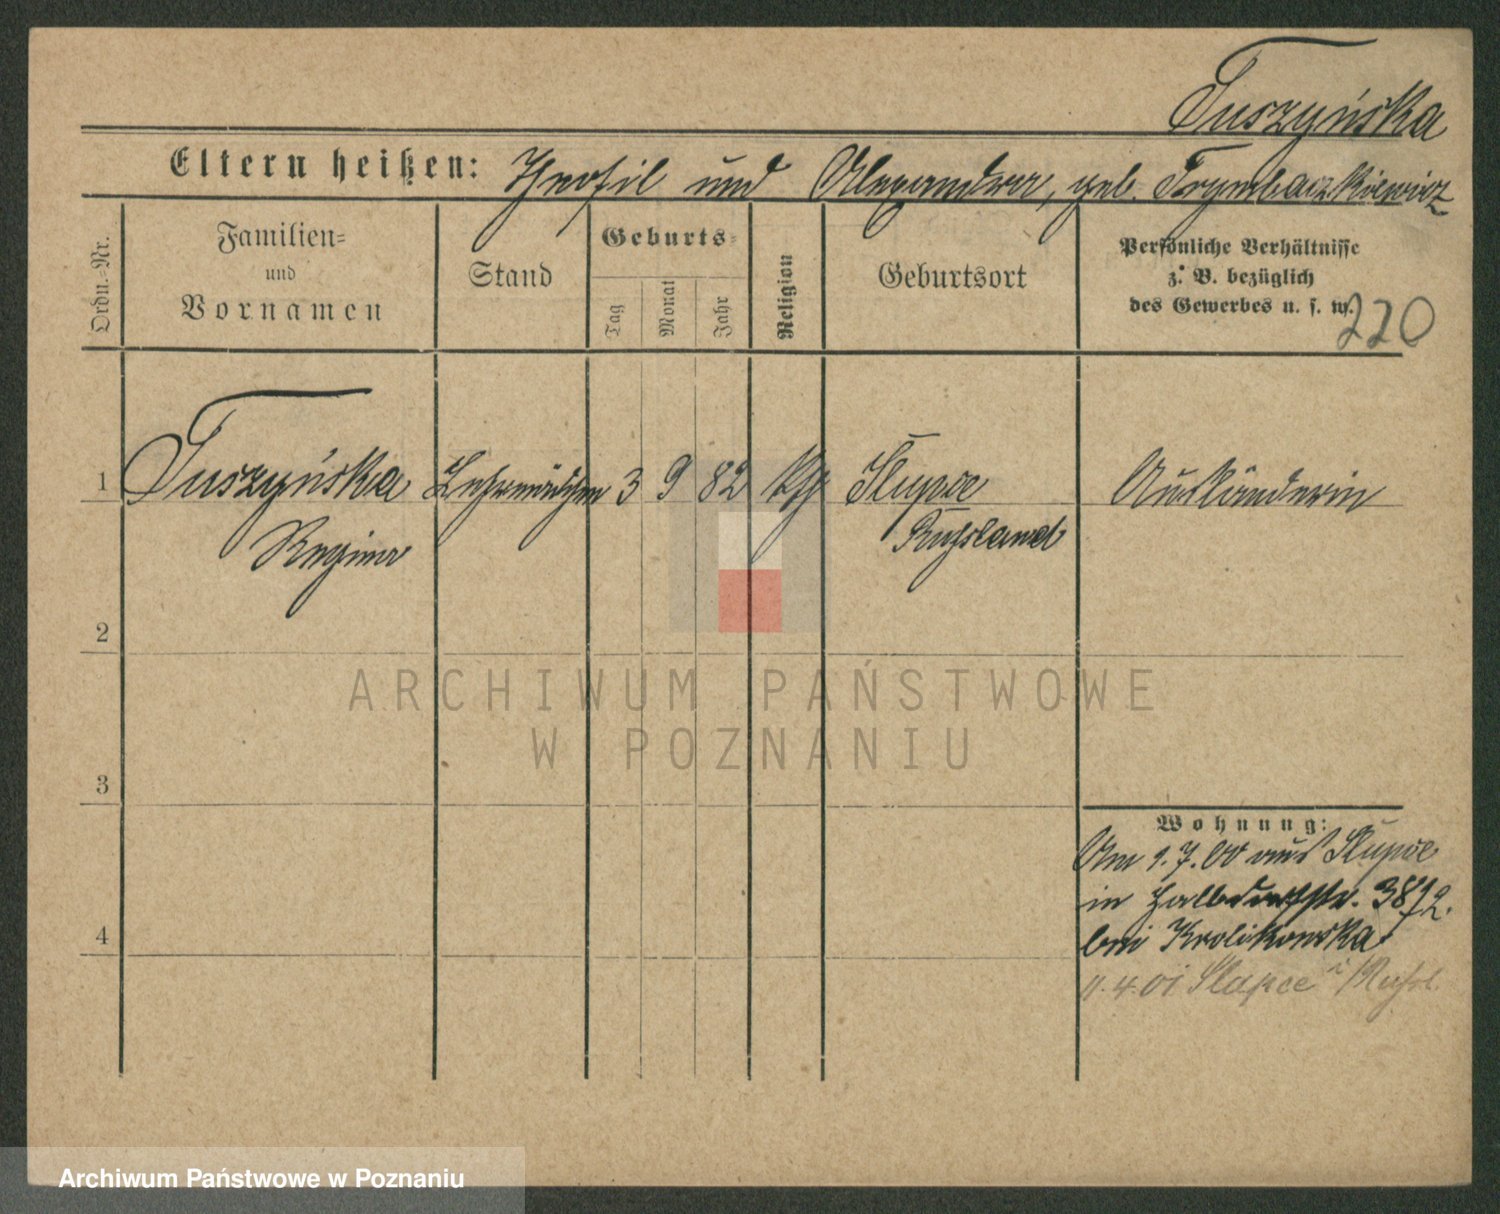 Tuszyńska
Eltern heißen: Theofil und Alexandra, geb. Trymbaczkiewicz
Ordn.-Nr.
Familien-
und
Vornamen
Stand
Geburts-
Tag
Monat
Jahr
Religion
Geburtsort
Persönliche Verhältnisse
z. B. bezüglich
des Gewerbes u. s. w.
220
1 Tuszyńska Lehrmädchen 3 9 82 kth Slupce Ausländerin
Regina Rußland
2
3
4
Wohnung:
Am 1.7.00 aus Slupce
in Halbdorfstr.
bei Krolikowska
11.4.01 Slupce i Rußl.
ARCHIWUM PAŃSTWOWE
W POZNANIU
Archiwum Państwowe w Poznaniu